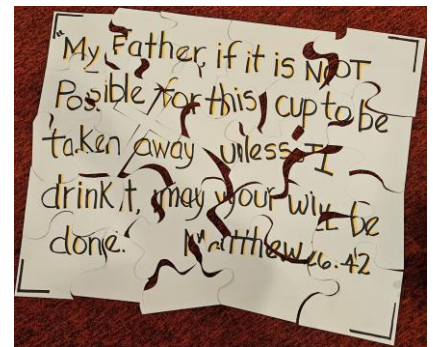 "My Father, if it is NOT
Posible for this cup to be
taken away unless I
drink it, may your will be
done." Matthew 26:42